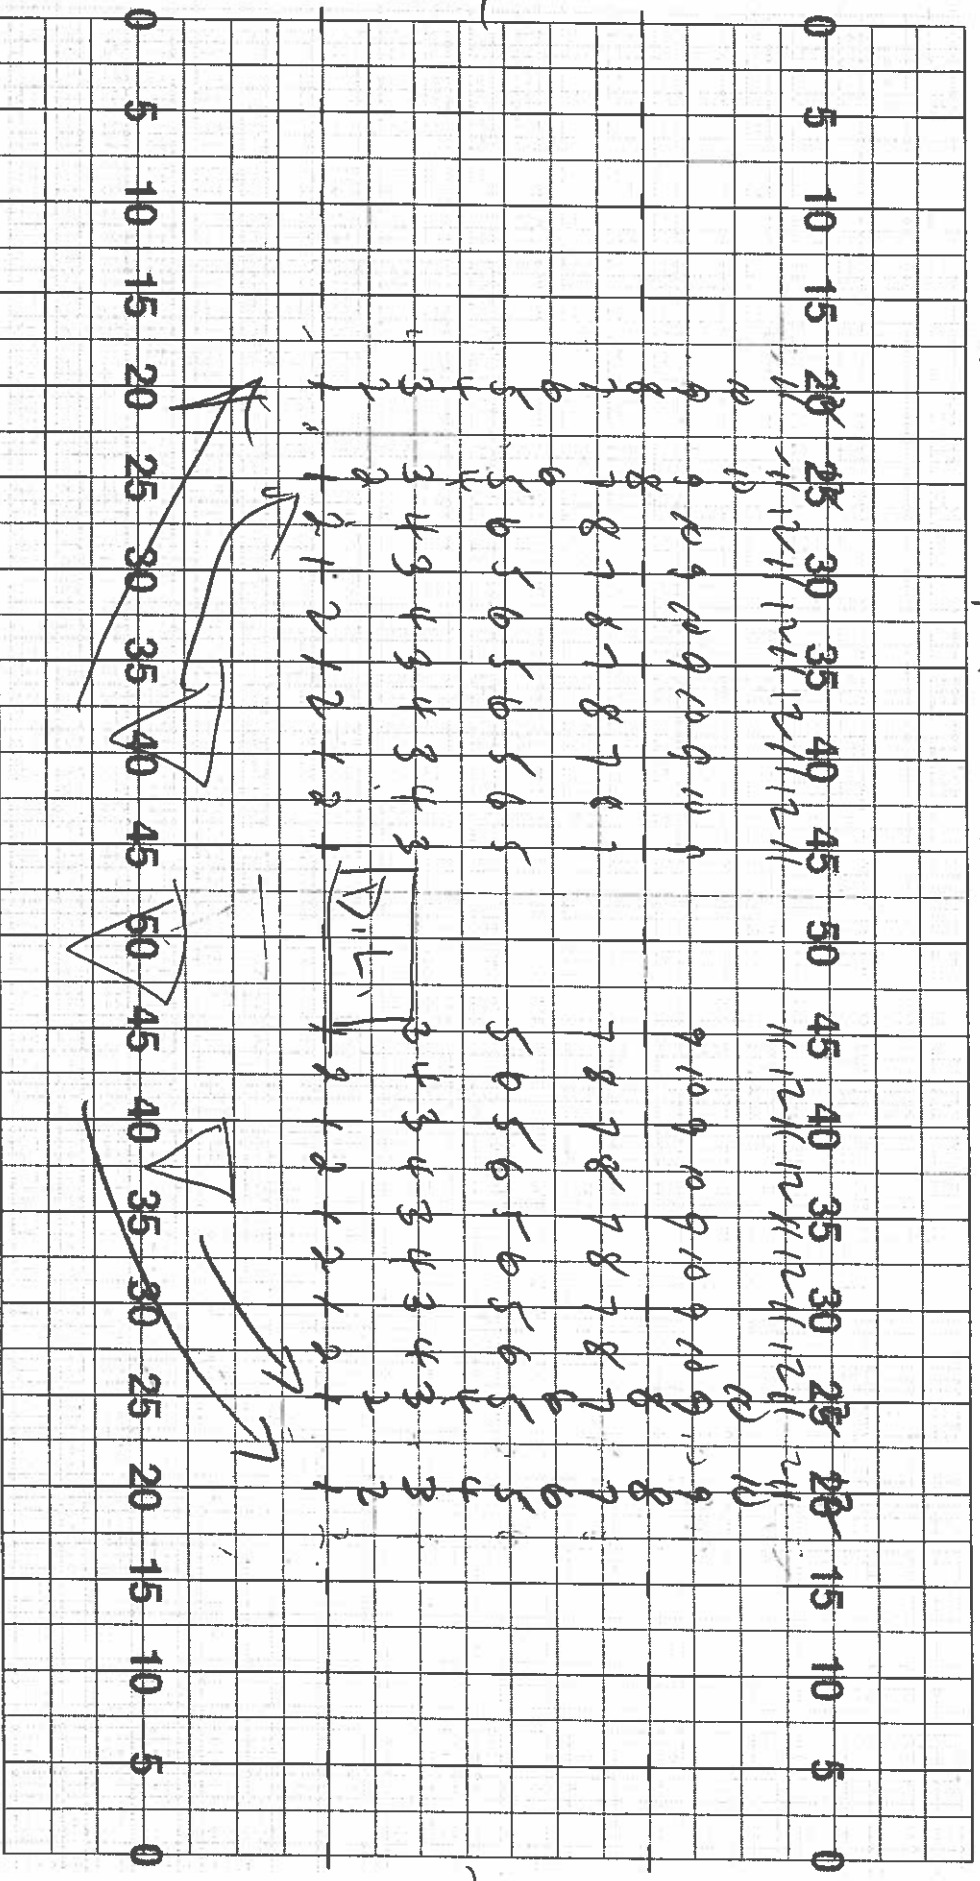 0 5 10 15 20 25 30 35 40 45 50 45 40 35 30 25 20 15 10 5 0
11 11 12 11 12 11 12 11 12 11 11 12 11 12 11 12 11 12 11 11
10 10 10 10
9 9 10 9 10 9 10 9 10 9 9 10 9 10 9 10 9 10 9 9
8 8 8 8
7 7 8 7 8 7 8 7 8 7 7 8 7 8 7 8 7 8 7 7
6 6 6 6
5 5 6 5 6 5 6 5 6 5 5 6 5 6 5 6 5 6 5 5
4 4 4 4
3 3 4 3 4 3 4 3 4 3 3 4 3 4 3 4 3 4 3 3
2 2 2 2
1 1 2 1 2 1 2 1 2 1 1 2 1 2 1 2 1 2 1 1
0 5 10 15 20 25 30 35 40 45 50 45 40 35 30 25 20 15 10 5 0